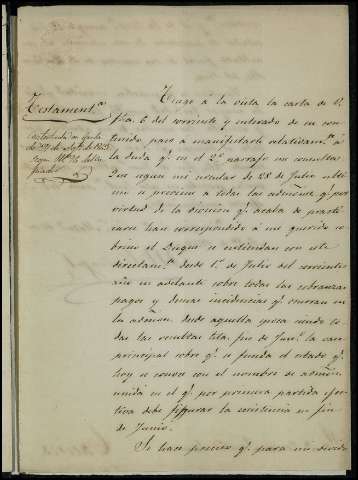 Testament.ª
Contestada en carta
de 29 de Sept.e de 1843
Tengo á la vista la carta de V.
fha. 6 del corriente y enterado de su con-
tenido paso a manifestarle relativam.te á
la duda q.e en el 2.º parrafo me consulta
Por aquen mi circular de 28 de Julio ulti-
mo se previene a todas las admones. q.e por
virtud de la division q.e acaba de practi-
carse han correspondido á mi querido so-
brino el Duque se entiendan con este
directam.te desde 1.º de Julio del corriente
año en adelante sobre todas las cobranzas
pagos y demas incidencias q.e ocurran en
la admon. desde aquella epoca siendo to-
das las resultas hta. fin de Jun.º la causa
principal sobre q.e se funda el estado q.e
hoy se conoce con el nombre de admon.
unida en el q.e por primera partida efec-
tiva debe figurar la existencia en fin
de Junio.
Se hace preciso q.e para mi